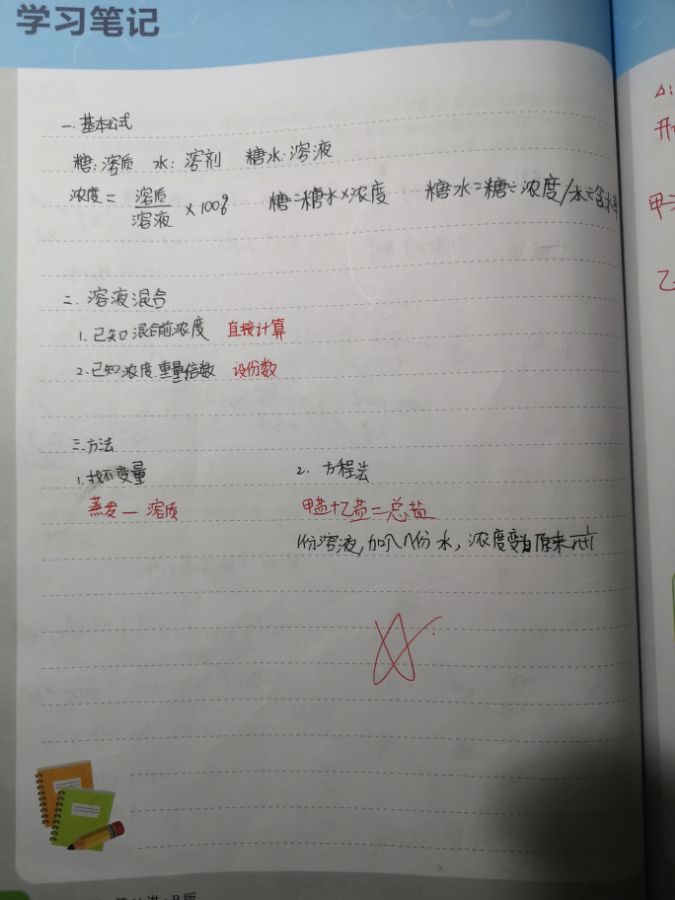 学习笔记
一.基本公式
糖:溶质 水:溶剂 糖水:溶液
浓度=溶质/溶液×100% 糖=糖水×浓度 糖水=糖÷浓度/水÷含水率
二.溶液混合
1.已知混合前浓度 直接计算
2.已知浓度.重量倍数 设份数
三.方法
1.找不变量 2.方程法
蒸发—溶质 甲盐+乙盐=总盐
1份溶液,加入n份水,浓度变为原来
甲
乙